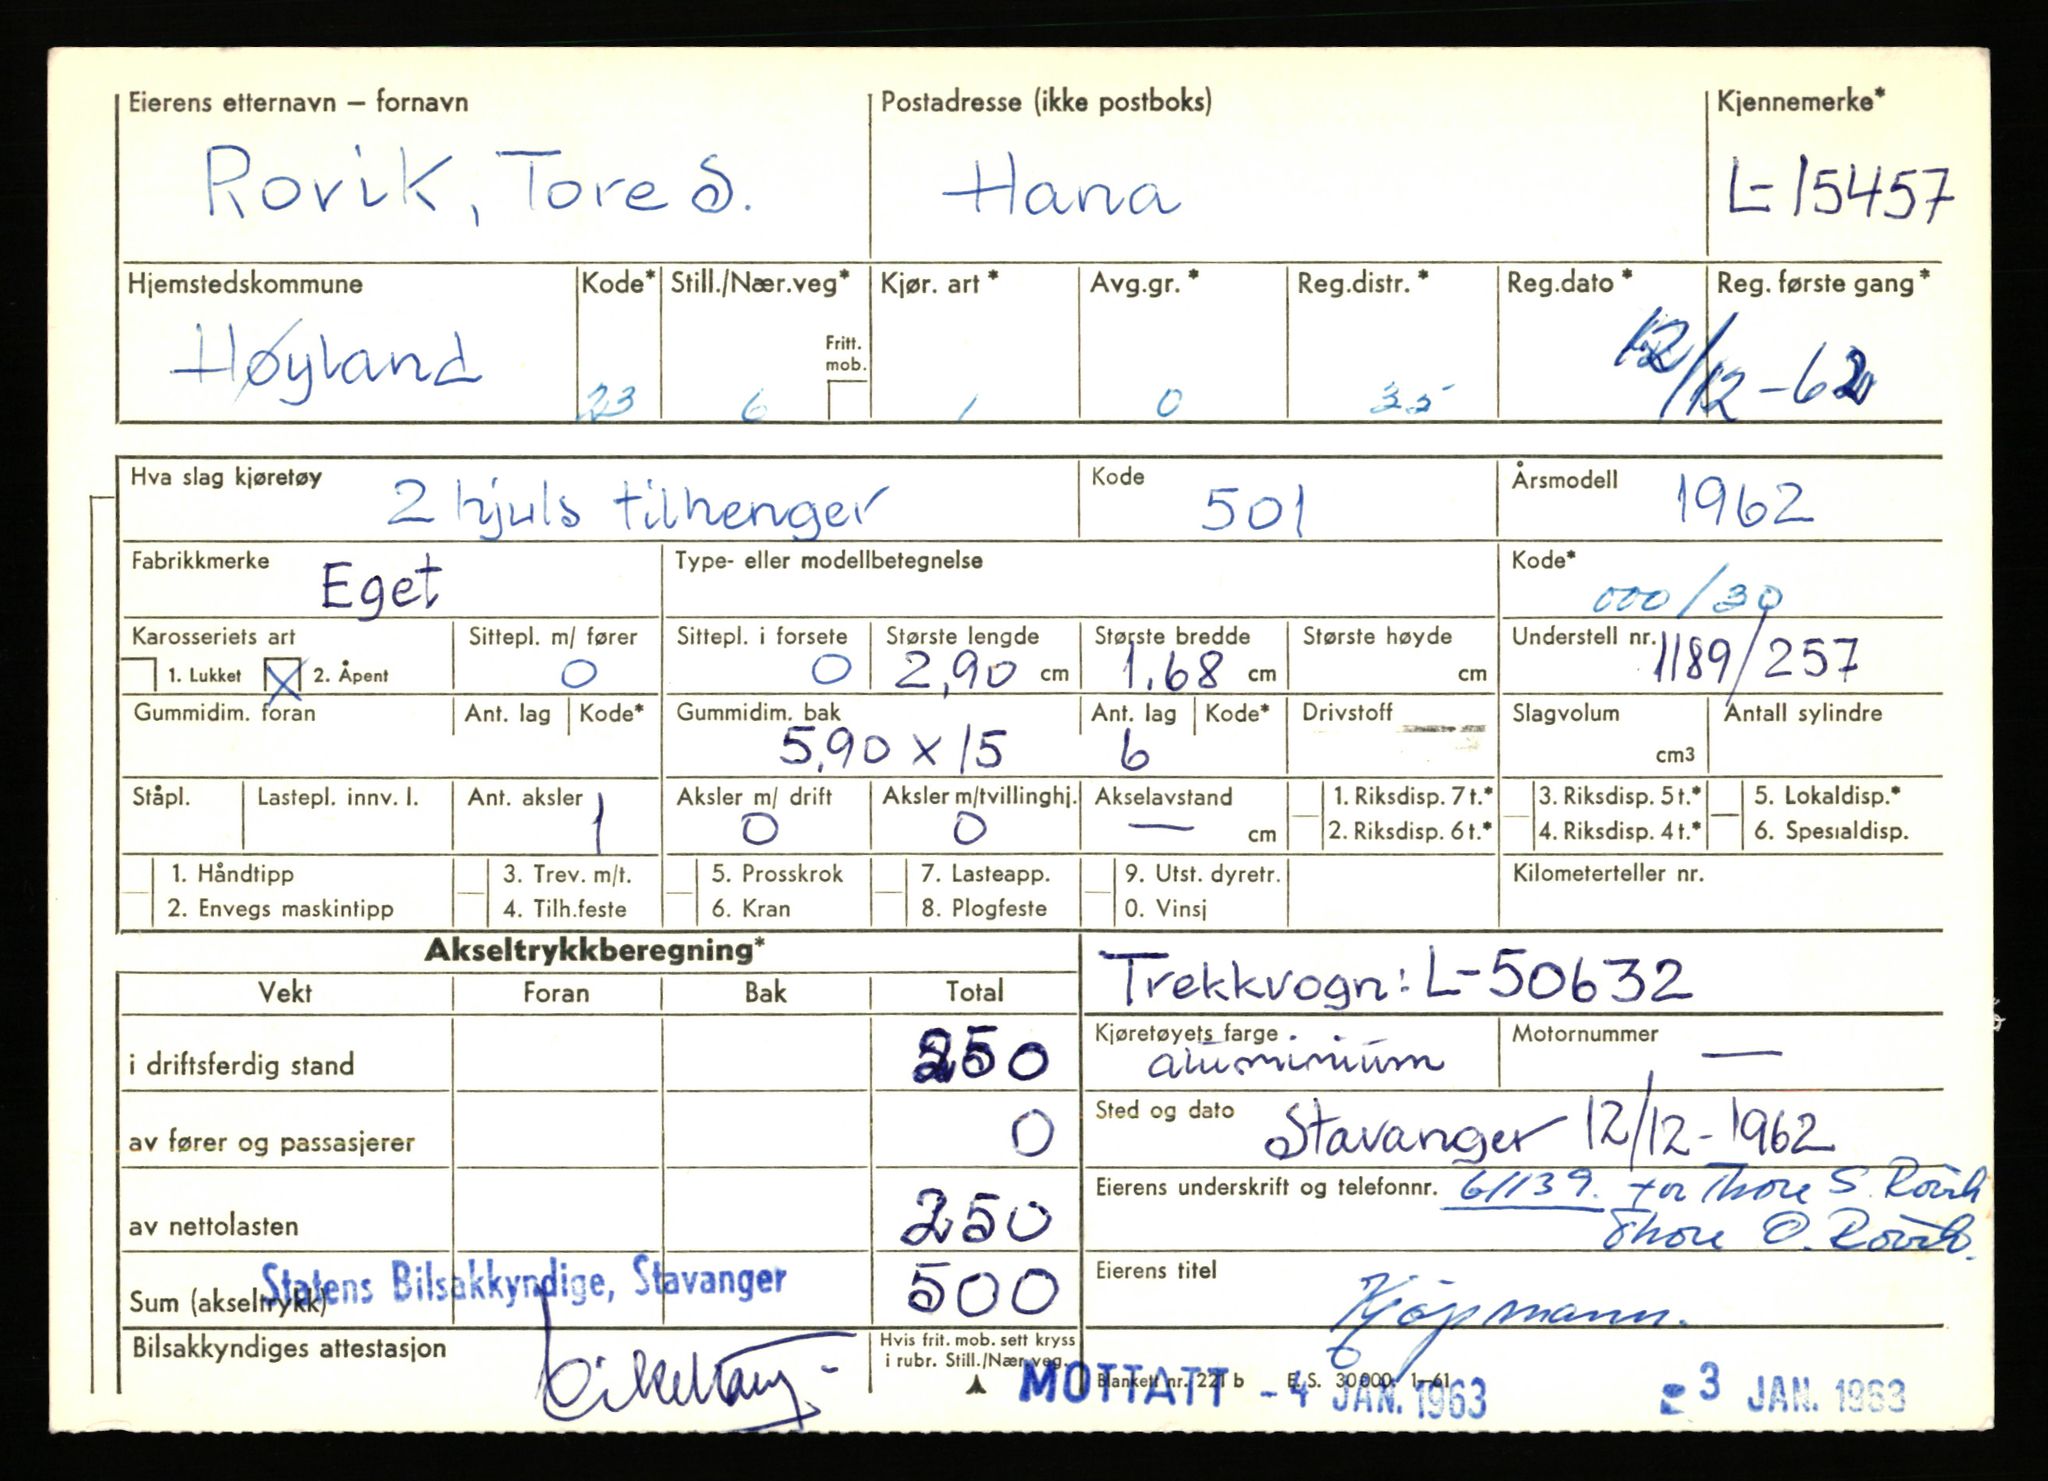 Eierens etternavn – fornavn Postadresse (ikke postboks) Kjennemerke*
Rovik, Tore S. Hana L-15457
Hjemstedskommune Kode* Still./Nær.veg* Kjør. art* Avg.gr.* Reg.distr.* Reg.dato* Reg. første gang*
Fritt. mob.
Høyland 23 6 1 0 35 12/12-62
Hva slag kjøretøy 2 hjuls tilhenger Kode 501 Årsmodell 1962
Fabrikkmerke Eget Type- eller modellbetegnelse Kode* 000/30
Karosseriets art Sittepl. m/ fører Sittepl. i forsete Største lengde Største bredde Største høyde Understell nr. 1189/257
1. Lukket X 2. Åpent 0 0 2,90 cm 1.68 cm cm
Gummidim. foran Ant. lag Kode* Gummidim. bak Ant. lag Kode* Drivstoff Slagvolum Antall sylindre
5,90 x 15 6 cm3
Ståpl. Lastepl. innv. l. Ant. aksler Aksler m/ drift Aksler m/tvillinghj. Akselavstand 1. Riksdisp. 7 t.* 3. Riksdisp. 5 t.* 5. Lokaldisp.*
1 0 0 — cm 2. Riksdisp. 6 t.* 4. Riksdisp. 4 t.* 6. Spesialdisp.
1. Håndtipp 3. Trev. m/t. 5. Prosskrok 7. Lasteapp. 9. Utst. dyretr. Kilometerteller nr.
2. Envegs maskintipp 4. Tilh.feste 6. Kran 8. Plogfeste 0. Vinsj
Akseltrykkberegning*
Trekkvogn: L-50632
Vekt Foran Bak Total
Kjøretøyets farge Motornummer
i driftsferdig stand 250 aluminium —
Sted og dato Stavanger 12/12-1962
av fører og passasjerer 0
Eierens underskrift og telefonnr. 61139. for Thore S. Rövik
av nettolasten 250 Thore O. Rövik.
Statens Bilsakkyndige, Stavanger
Sum (akseltrykk) 500
Eierens titel Kjøpmann.
Bilsakkyndiges attestasjon
Hvis frit. mob. sett kryss
i rubr. Still./Nær.veg.
Blankett nr. 221 b E. S. 30000 1–61
MOTTATT - 4 JAN. 1963 3 JAN. 1963